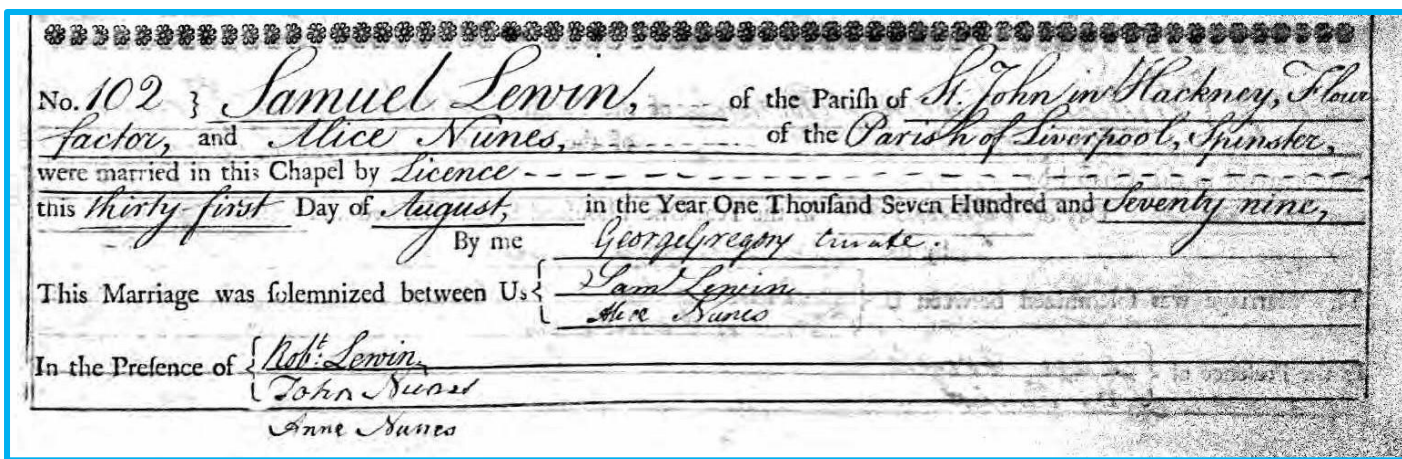 No. 102 } Samuel Lewin, of the Pariſh of St. John in Hackney, Flour
factor, and Alice Nunes, of the Parish of Liverpool, Spinster,
were married in this Chapel by Licence - - - - - - - - - - - - - - - - - -
this thirty first Day of August, in the Year One Thouſand Seven Hundred and Seventy nine,
By me George Gregory Curate.
This Marriage was ſolemnized between Us { Sam Lewin
Alice Nunes
In the Preſence of { Robt. Lewin,
John Nunes
Anne Nunes